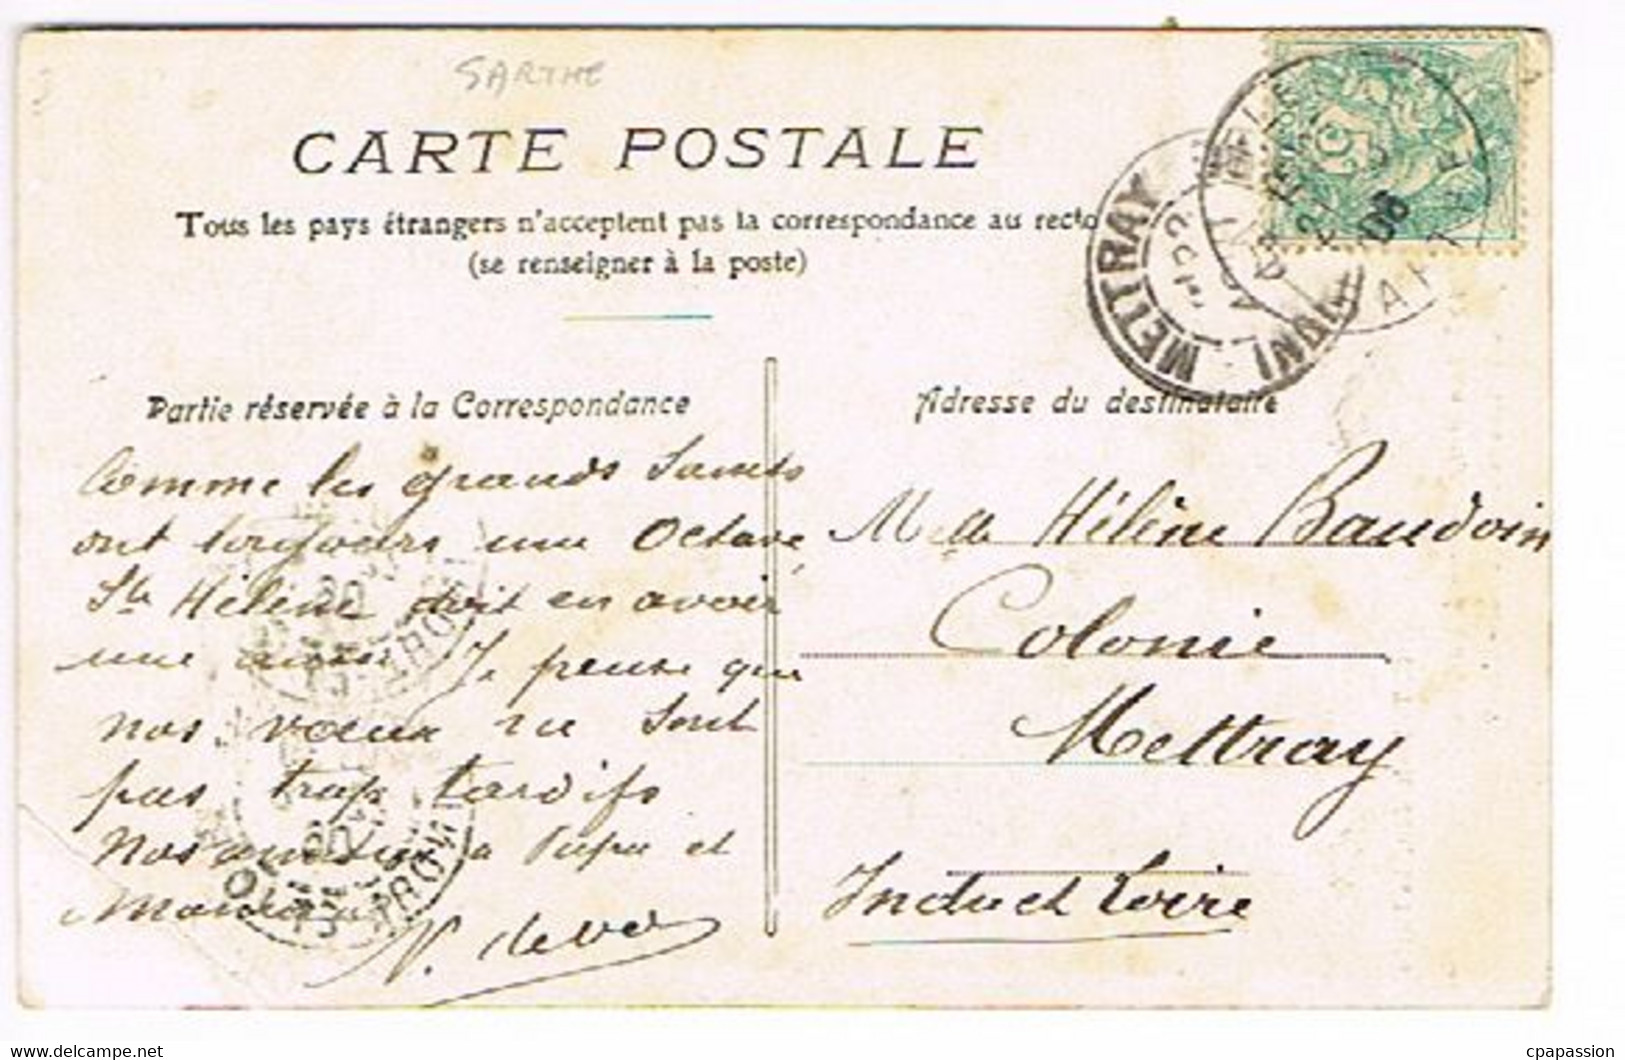 SARTHE
CARTE POSTALE
Tous les pays étrangers n'acceptent pas la correspondance au recto
(se renseigner à la poste)
METTRAY
INDRE
Partie réservée à la Correspondance
Adresse du destinataire
Comme les grands Saints
ont toujours une Octave
Ste Hélène doit en avoir
une aussi Je pense que
nos vœux ne sont
pas trop tardifs
Nos amitiés a Papa et
Maman
Melle Hélène Baudoin
Colonie
Mettray
Indre et Loire
www.delcampe.net
cpapassion